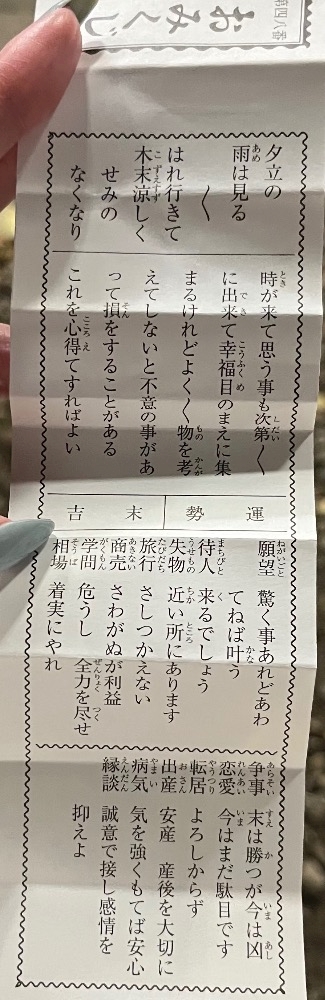 第四八番
おみくじ
夕立の
雨は見る
〱
はれ行きて
木末涼しく
せみの
なくなり
時が来て思う事も次第〱
に出来て幸福目のまえに集
まるけれどよく〱物を考
えてしないと不意の事があ
って損をすることがある
これを心得てすればよい
運勢
末吉
願望 驚く事あれどあわ
てねば叶う
待人 来るでしょう
失物 近い所にあります
旅行 さしつかえない
商売 さわがぬが利益
学問 危うし 全力を尽せ
相場 着実にやれ
争事 末は勝つが今は凶
恋愛 今はまだ駄目です
転居 よろしからず
出産 安産 産後を大切に
病気 気を強くもてば安心
縁談 誠意で接し感情を
抑えよ